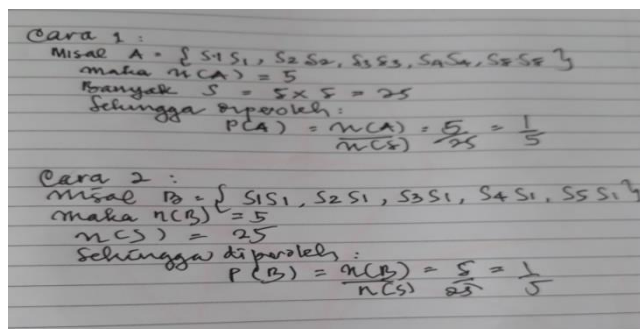 Cara 1 :
Misal A = { S1 S1, S2 S2, S3 S3, S4 S4, S5 S5 }
maka n(A) = 5
Banyak S = 5 x 5 = 25
Sehingga diperoleh :
P(A) = n(A)/n(S) = 5/25 = 1/5
Cara 2 :
Misal B = { S1 S1, S2 S1, S3 S1, S4 S1, S5 S1 }
maka n(B) = 5
n(S) = 25
Sehingga diperoleh :
P(B) = n(B)/n(S) = 5/25 = 1/5